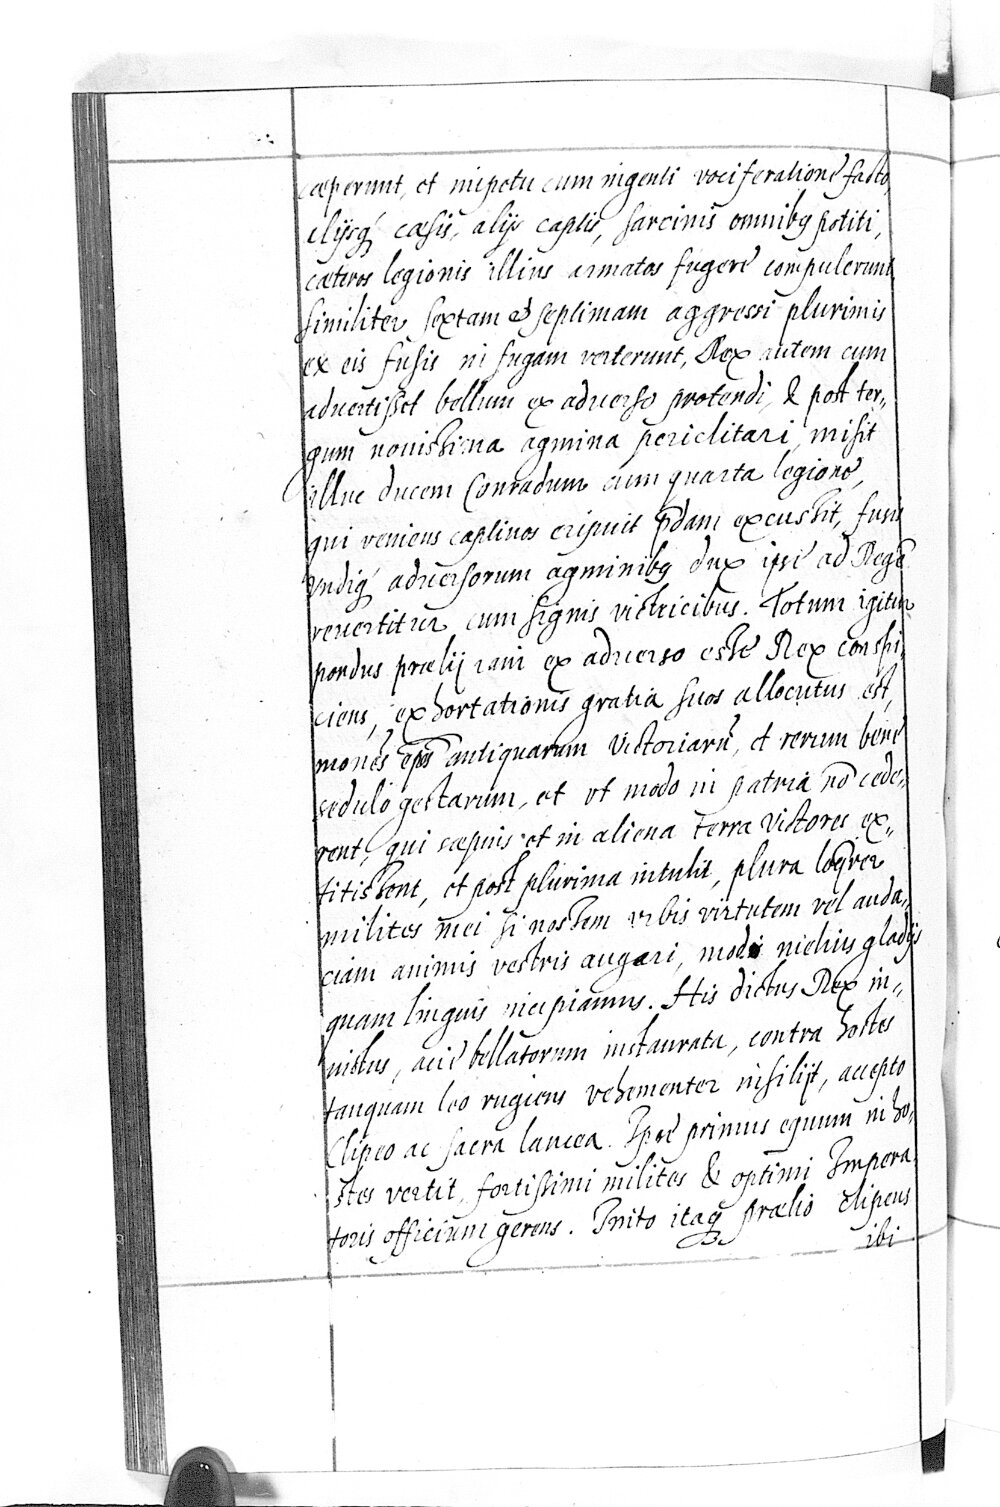 cœperunt, et impetu cum ingenti vociferatione facto,
alijsq́ cæsis, alijs captis, sarcinis omnibꝫ potiti,
cæteros legionis illius armatos fugere compulerunt
similiter sextam et septimam aggressi plurimis
ex eis fusis in fugam verterunt, Rex autem cum
aduertisset bellum ex aduerso protendi, & post ter„
gum nouissima agmina periclitari, misit
illuc ducem Conradum cum quarta legione,
qui veniens captiuos eripuit p̄dam excussit, fusis
vndiq́ aduersorum agminibꝫ dux ipse ad Regē
reuertitur cum signis victricibus. Totum igitur
pondus prælij iam ex aduerso esse Rex conspi
ciens, exhortationis gratia suos allocutus est,
monēs eos antiquarum victoriarū, et rerum bene
sedulo gestarum, et vt modo in patria nō cede„
rent, qui sæpius et in aliena terra victores ex„
titissent, et post plurima intulit, plura loq̄rer
milites mei si nossem vrbis virtutem vel auda„
ciam animis vestris augeri, modo melius gladijs
quam linguis incipiamus. His dictus Rex in„
uictus, acie bellatorum instaurata, contra hostes
tanquam leo rugiens vehementer insilijt, accepto
Clipeo ac sacra lancea. Ipse primus equum in ho„
stes vertit, fortissimi milites & optimi Impera
toris officium gerens. Inito itaq̄ prælio clipeus
ibi